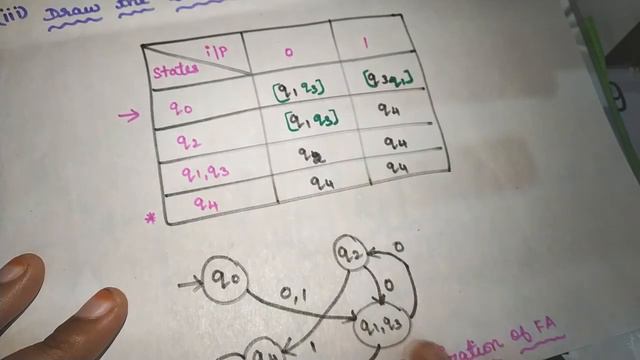 (iii) Draw the
i/p 0 1
States
→ q0 [q1 q3] [q3 q1]
q2 [q1 q3] q4
q1,q3 q2 q4
* q4 q4 q4
q2 0
q0 0
0,1
q1,q3
q4 1
ation of FA